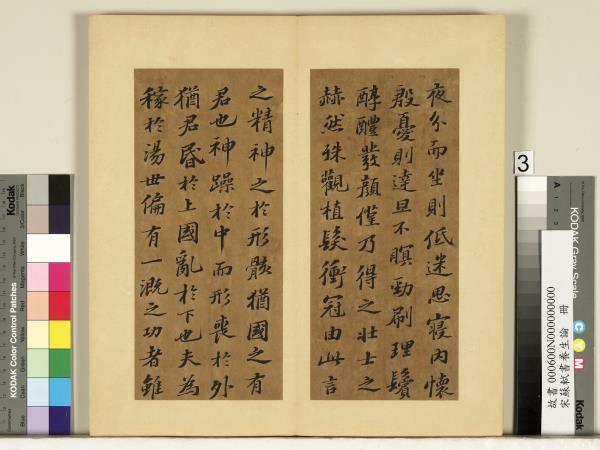 夜分而坐則低迷思寢內懷
殷憂則達旦不瞑勁刷理鬢
醇醴發顏僅乃得之壯士之
赫然殊觀植髮衝冠由此言
之精神之於形骸猶國之有
君也神躁於中而形喪於外
猶君昏於上國亂於下也夫為
稼於湯世偏有一溉之功者雖
3
故書 000600N000000000
宋蘇軾書養生論 冊
KODAK Color Control Patches
Blue
Cyan
Green
Yellow
Red
Magenta
White
Black
Kodak
KODAK Gray Scale
A 1 2 3
C Y M
Kodak